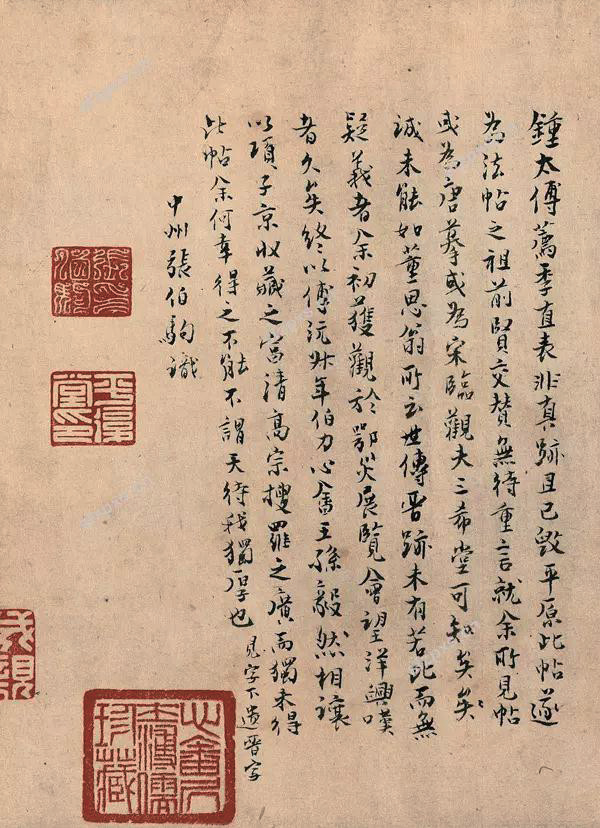 鍾太傅薦季直表非真跡且已毀平原此帖遂
為法帖之祖前賢交贊無待重言就余所見帖
或為唐摹或為宋臨觀夫三希堂可知矣矣
誠未能如董思翁所云世傳晉跡未有若此而無
疑義者余初獲觀於鄂災展覽會望洋興嘆
者久矣終以傅沅叔年伯力心畬王孫毅然相讓
以項子京收藏之富清高宗搜羅之廣而獨未得
此帖余何幸得之不能不謂天待我獨厚也
見字下遺晉字
中州張伯駒識
張印伯駒
平復堂印